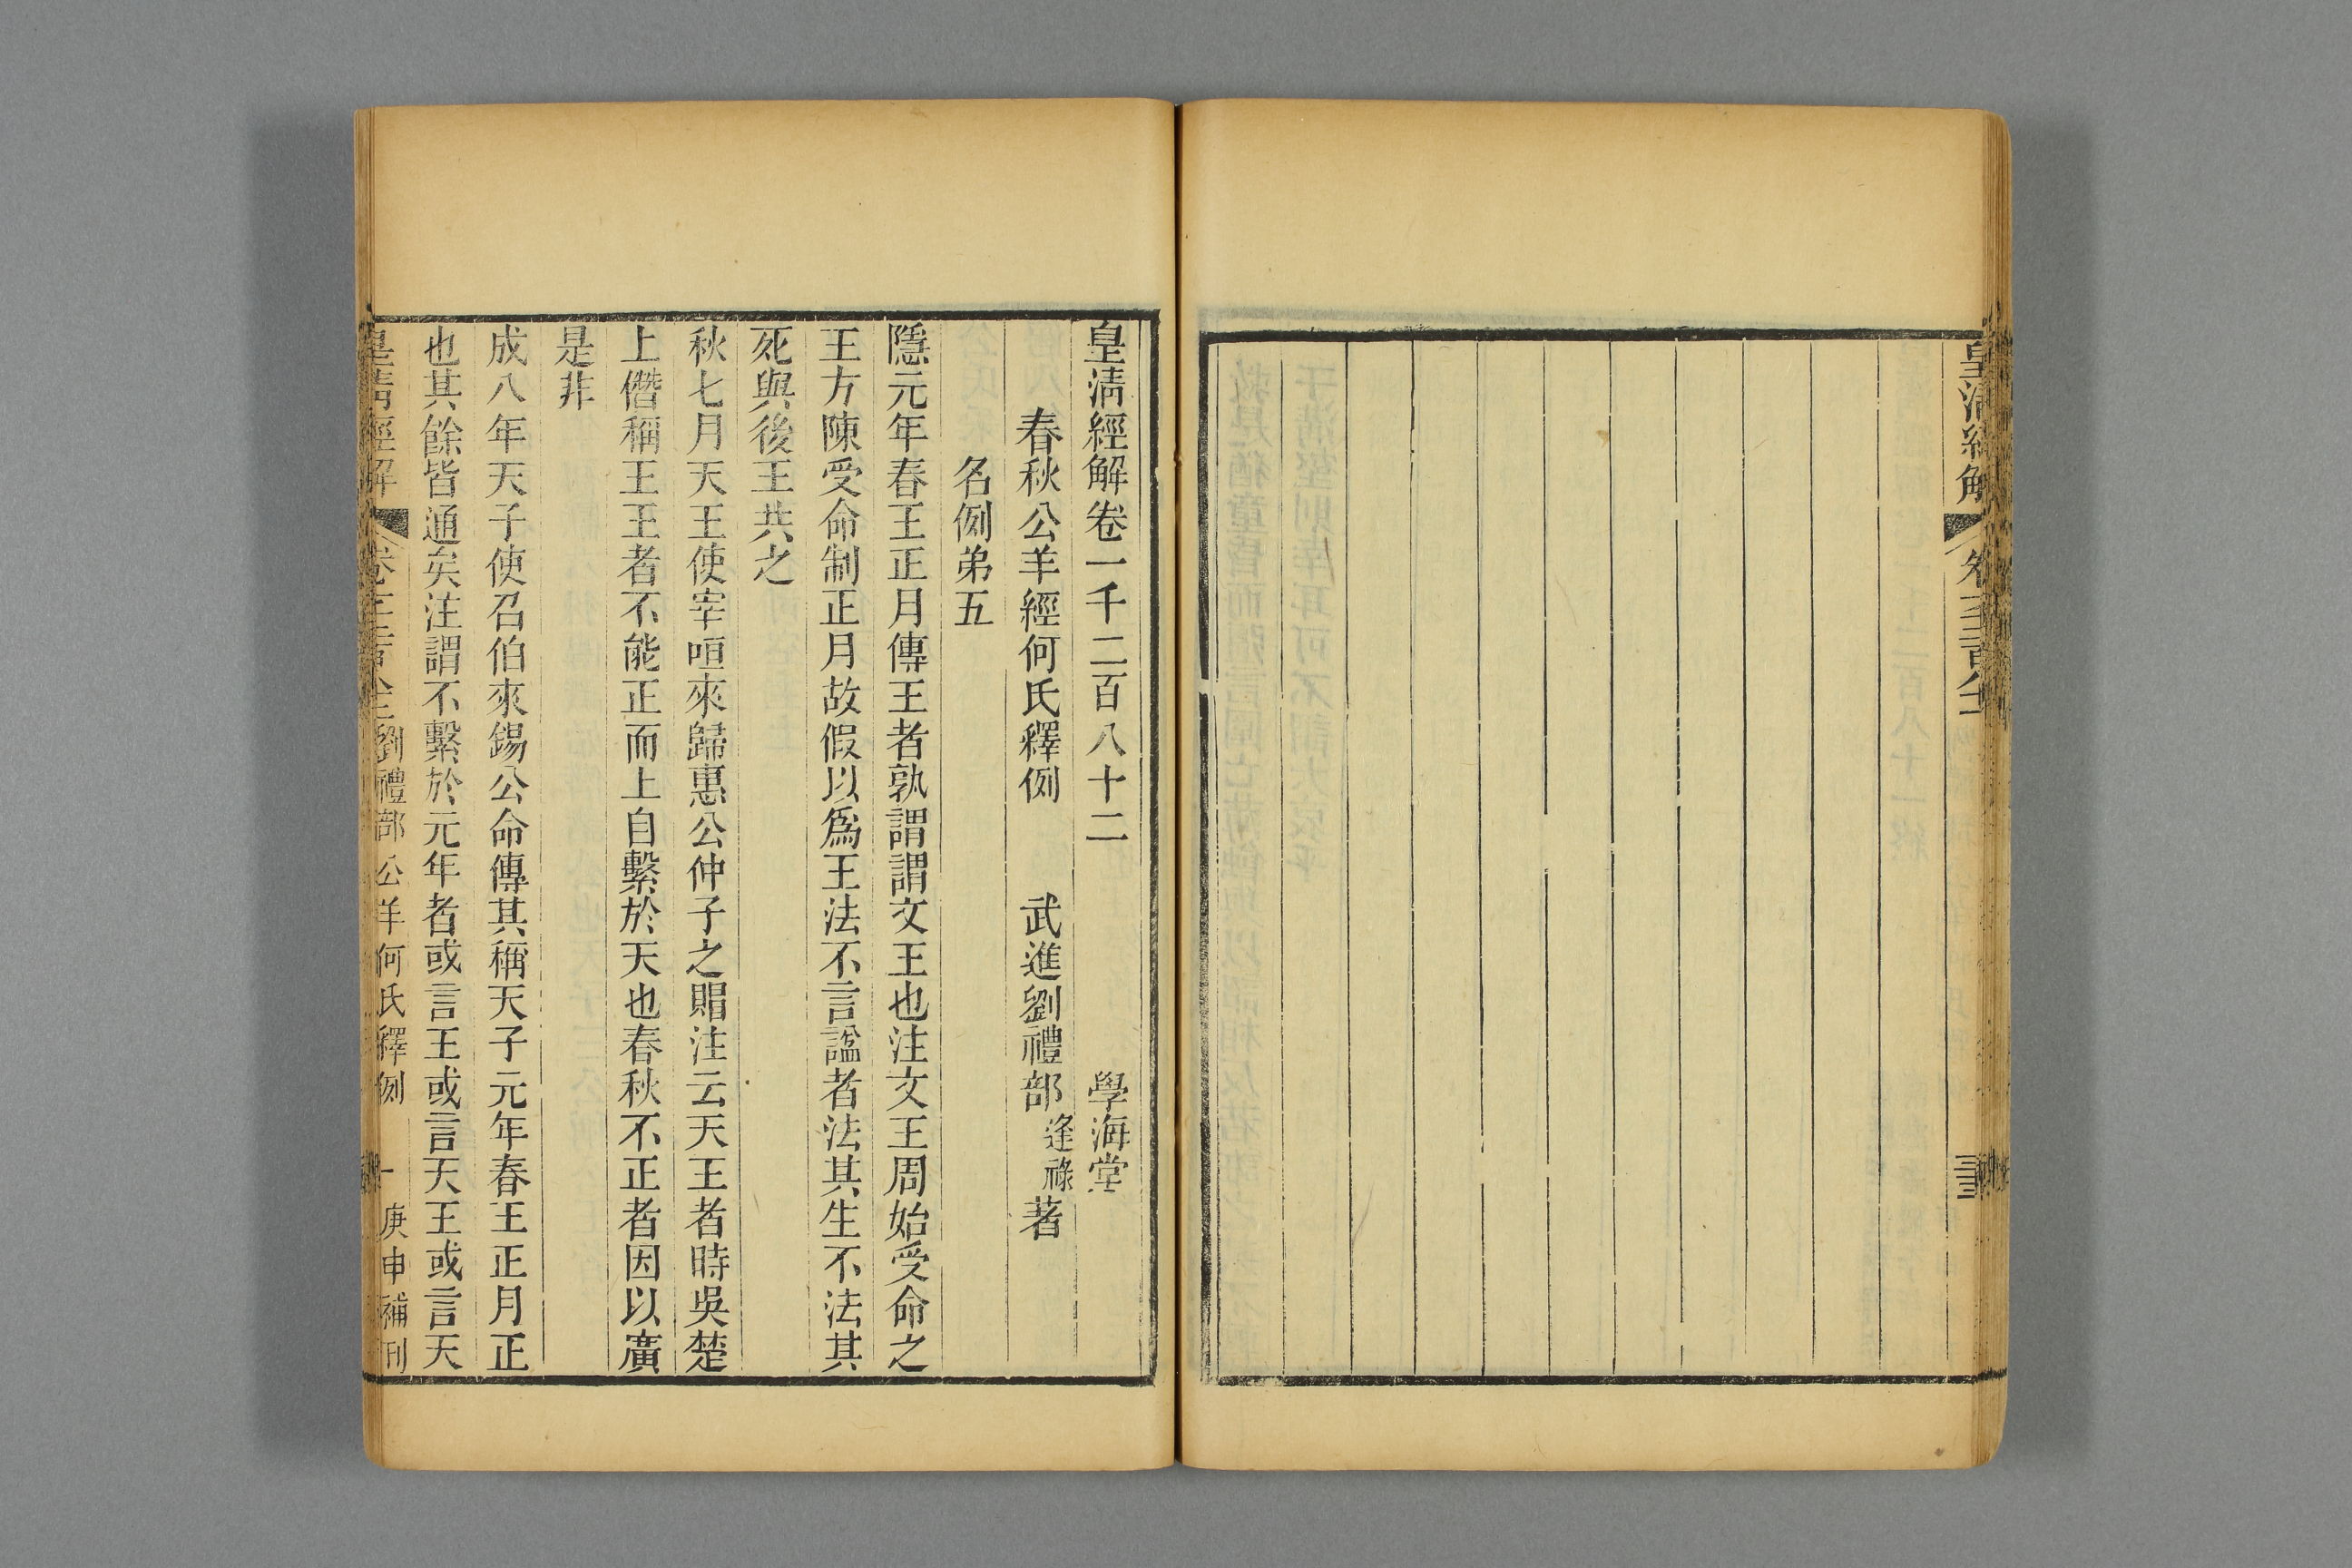 皇清經解
皇清經解卷一千二百八十二 學海堂
春秋公羊經何氏釋例 武進劉禮部逢祿著
名例弟五
隱元年春王正月傳王者孰謂謂文王也注文王周始受命之
王方陳受命制正月故假以爲王法不言諡者法其生不法其
死與後王共之
秋七月天王使宰咺來歸惠公仲子之賵注云天王者時吳楚
上僭稱王王者不能正而上自繫於天也春秋不正者因以廣
是非
成八年天子使召伯來錫公命傳其稱天子元年春王正月正
也其餘皆通矣注謂不繫於元年者或言王或言天王或言天
皇清經解 劉禮部公羊何氏釋例 一 庚申補刊